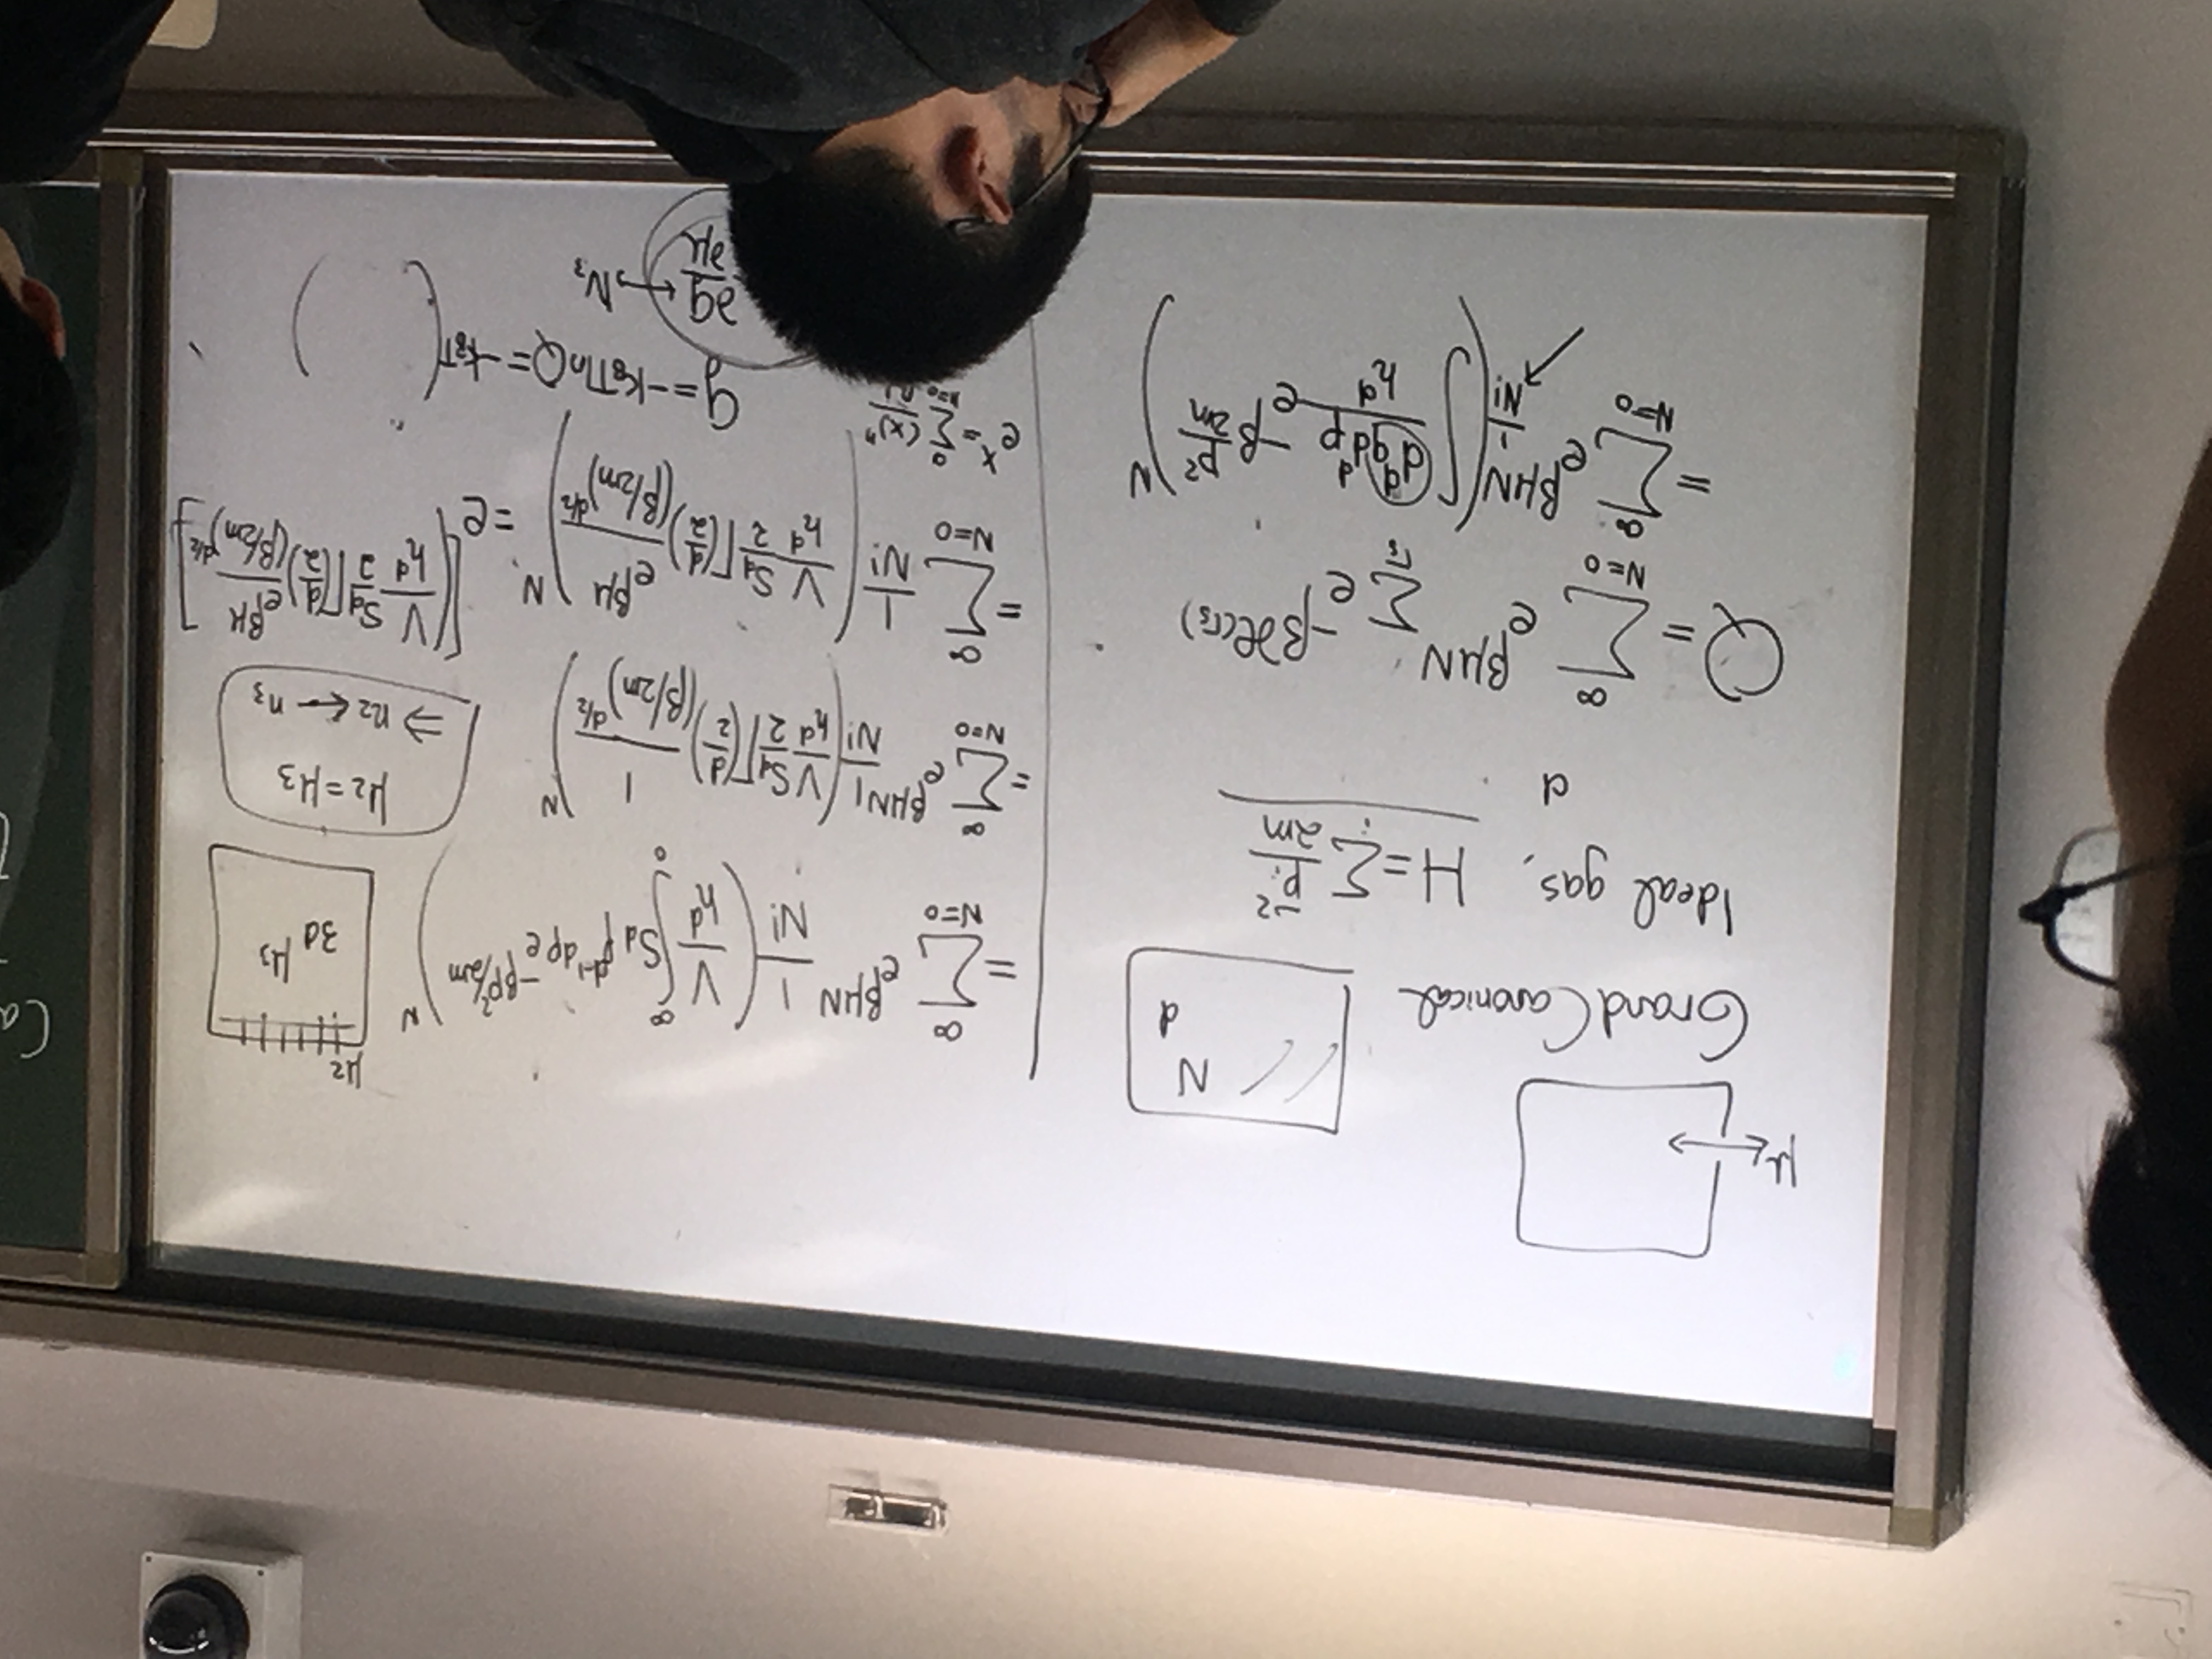 μ
N
d
Grand Canonical
Ideal gas, H = Σ_i p⃗_i²/2m
d
Q = Σ_{N=0}^{∞} e^{βμN} Σ_{Γs} e^{-βℋ(Γs)}
= Σ_{N=0}^{∞} e^{βμN} 1/N! (∫ d^d q d^d p / h^d e^{-β p²/2m})^N
= Σ_{N=0}^{∞} e^{βμN} 1/N! (V/h^d ∫_0^∞ S_d p^{d-1} dp e^{-βp²/2m})^N
= Σ_{N=0}^{∞} e^{βμN} 1/N! (V/h^d S_d/2 Γ(d/2) 1/(β/2m)^{d/2})^N
= Σ_{N=0}^{∞} 1/N! (V/h^d S_d/2 Γ(d/2) e^{βμ}/(β/2m)^{d/2})^N = e^{[(V/h^d S_d/2 Γ(d/2) e^{βμ}/(β/2m)^{d/2}]}
e^x = Σ_{n=0}^{∞} (x)^n/n!
G = -k_BT ln Q = -k_BT( )
∂G/∂μ ↔ N_3
μ2
3d μ3
μ2 = μ3
⇒ n2 ← n3
Ca